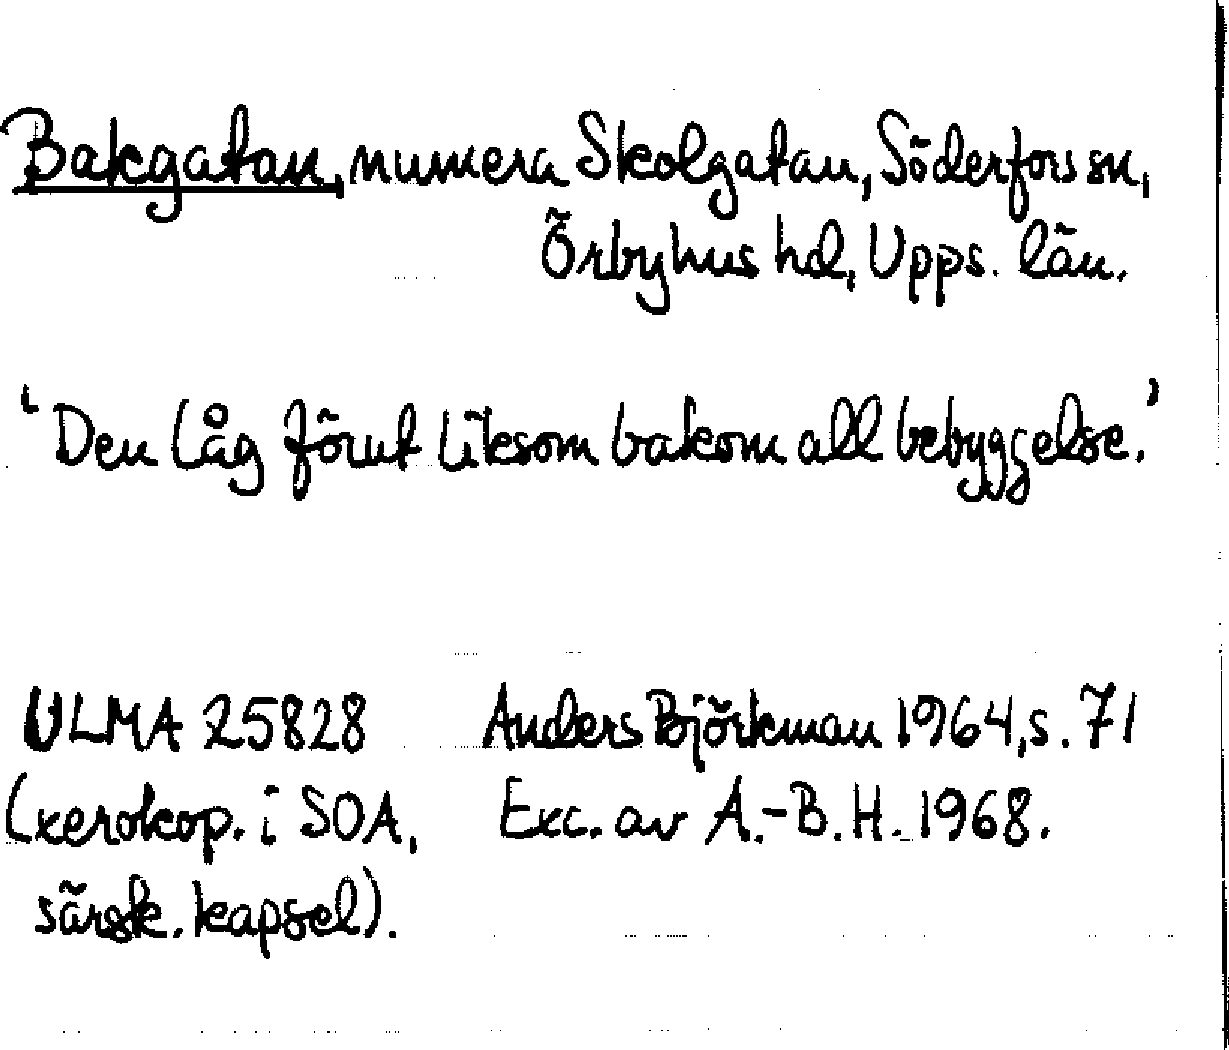 Bakgatan, numera Skolgatan, Söderfors sn,
Örbyhus hd, Upps. län.
'Den låg förut liksom bakom all bebyggelse.'
ULMA 25828 Anders Björkman 1964, s. 71
(xerokop. i SOA, Exc. av A.-B. H. 1968.
särsk. kapsel).